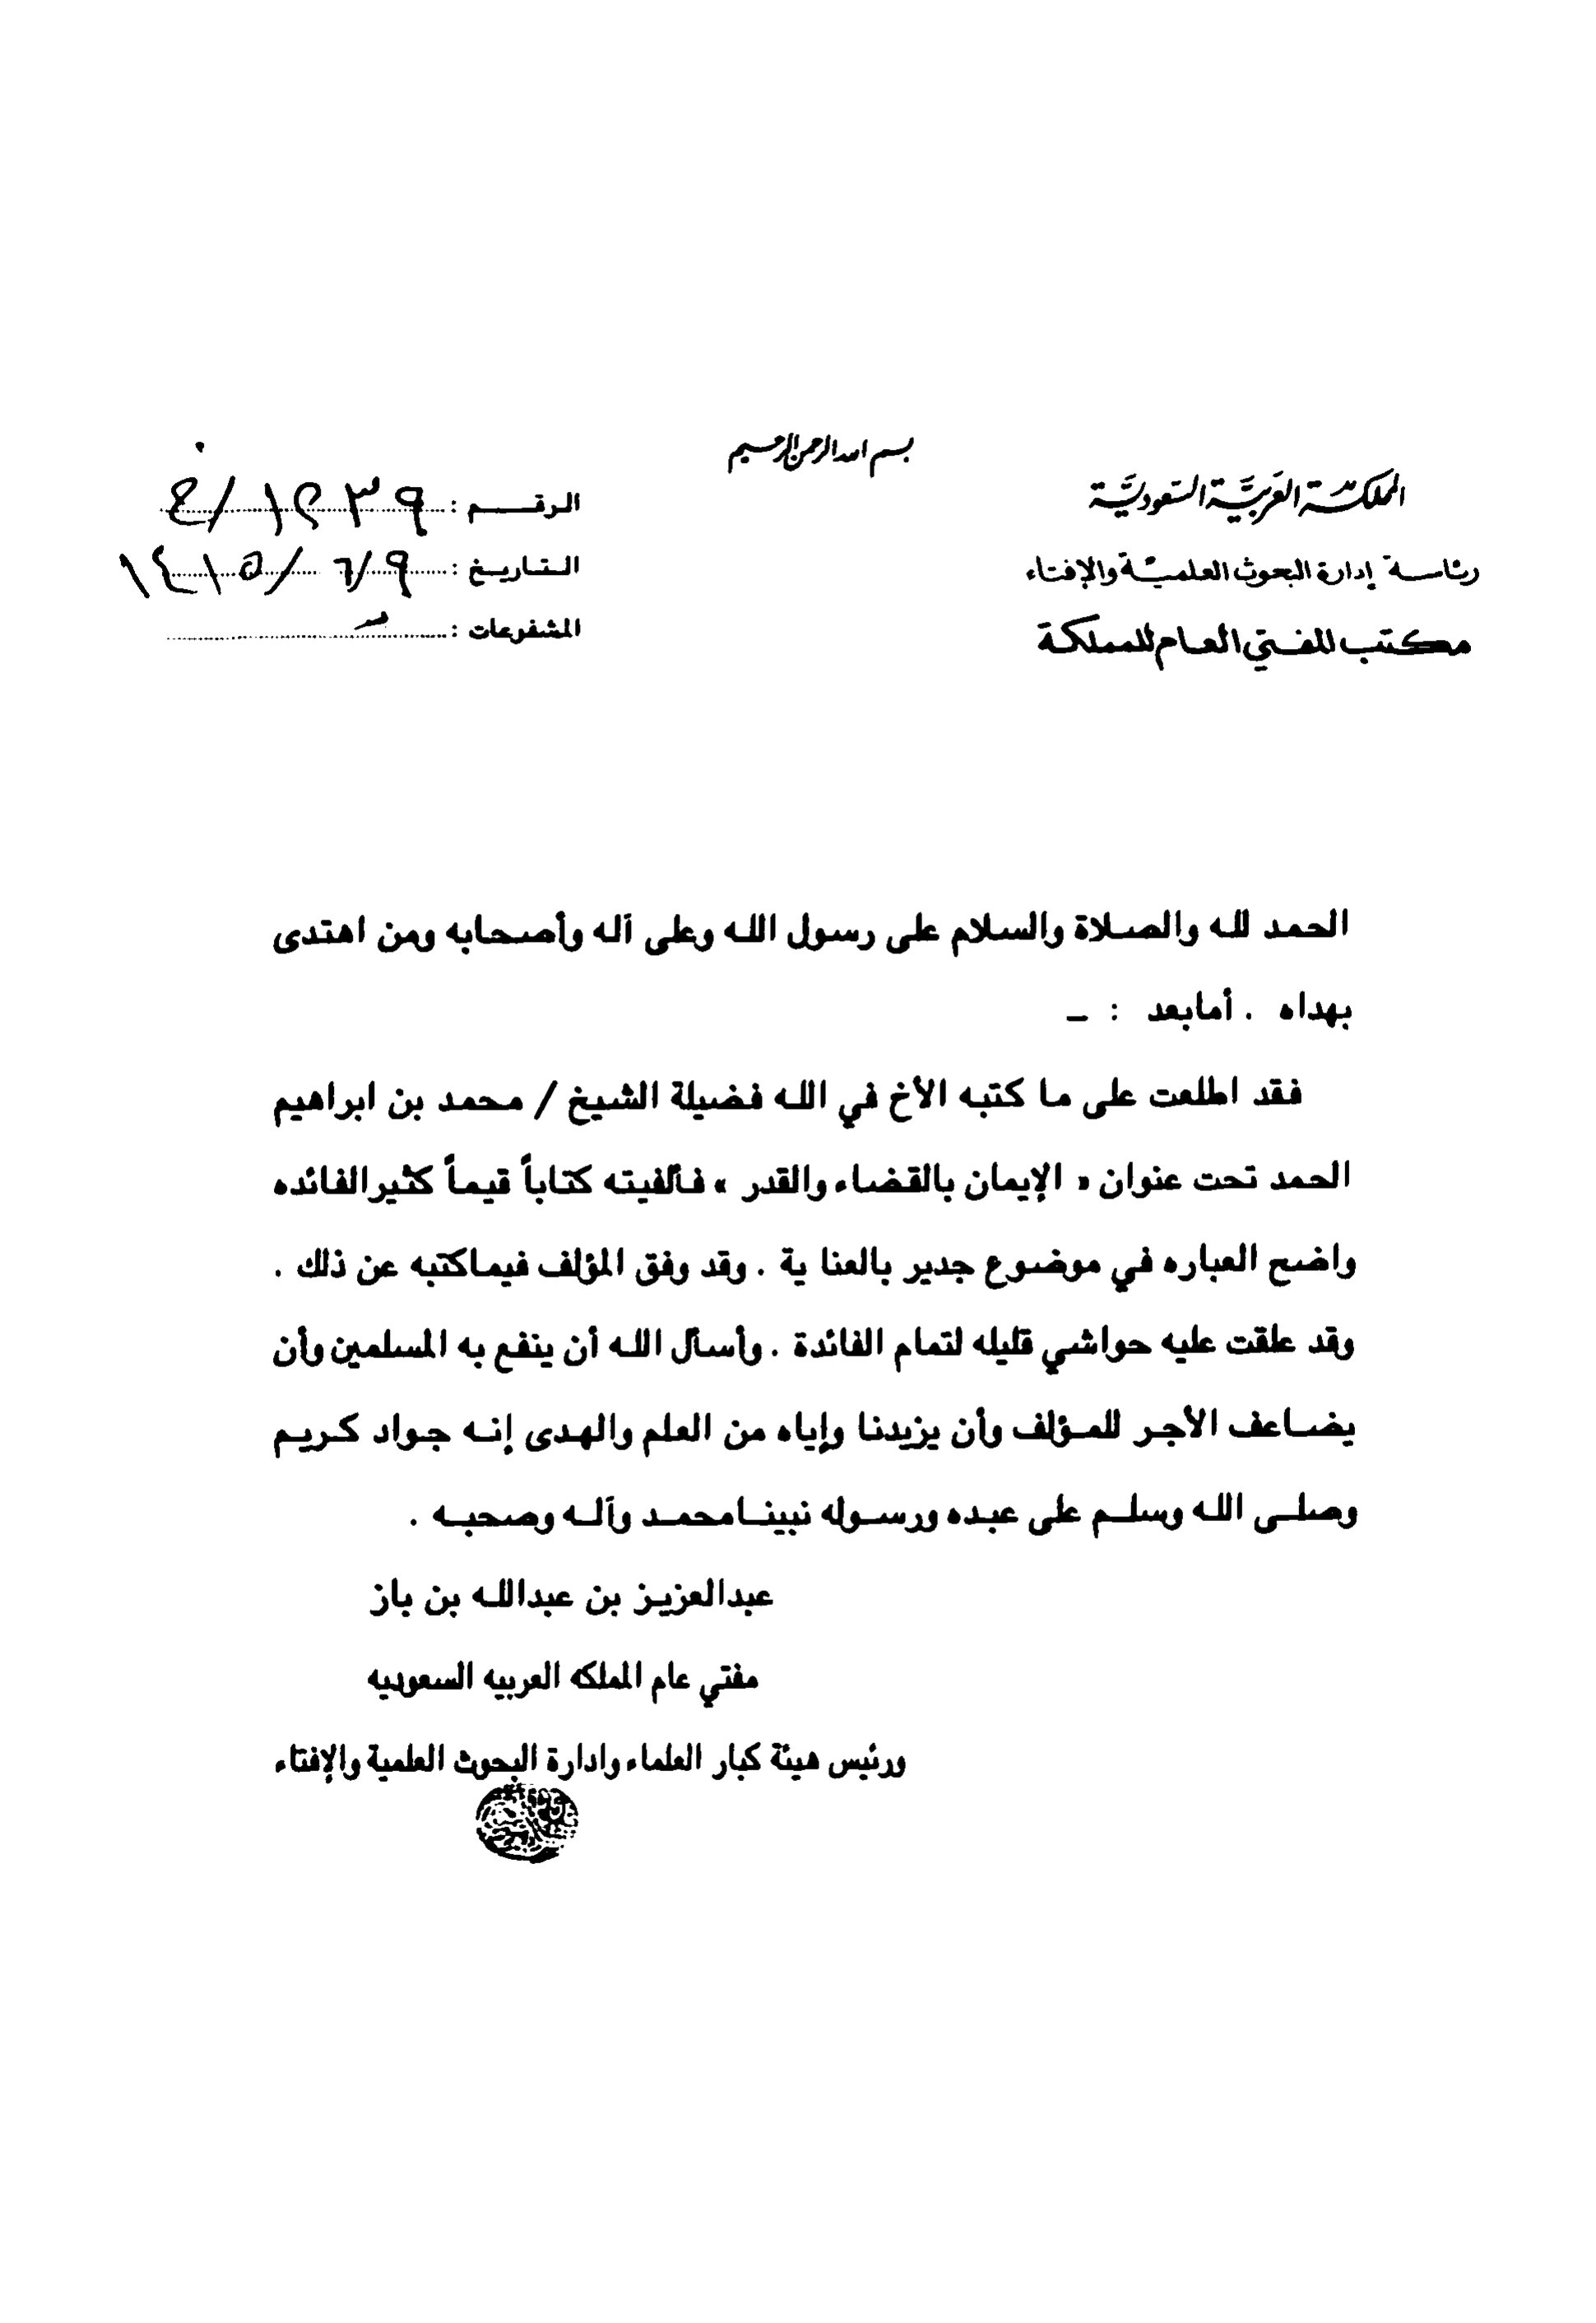 بسم الله الرحمن الرحيم
المملكة العربية السعودية
رئاسة إدارة البحوث العلمية والإفتاء
مكتب المفتي العام للمملكة
الرقم : ١٢٣٩/خ
التاريخ : ٩/٦/١٤١٥
المشفوعات :
الحمد لله والصلاة والسلام على رسول الله وعلى آله وأصحابه ومن اهتدى
بهداه . أمابعد : ـ
فقد اطلعت على ما كتبه الأخ في الله فضيلة الشيخ / محمد بن ابراهيم
الحمد تحت عنوان « الإيمان بالقضاء والقدر » فألفيته كتاباً قيماً كثيرالفائده
واضح العباره في موضوع جدير بالعنا ية . وقد وفق المؤلف فيماكتبه عن ذلك .
وقد علقت عليه حواشي قليله لتمام الفائدة . وأسأل الله أن ينفع به المسلمين وأن
يضاعف الأجر للمؤلف وأن يزيدنا وإياه من العلم والهدى إنه جواد كريم
وصلى الله وسلم على عبده ورسوله نبينامحمد وآله وصحبه .
عبدالعزيز بن عبدالله بن باز
مفتي عام المملكه العربيه السعوديه
ورئيس هيئة كبار العلماء وادارة البحوث العلمية والإفتاء